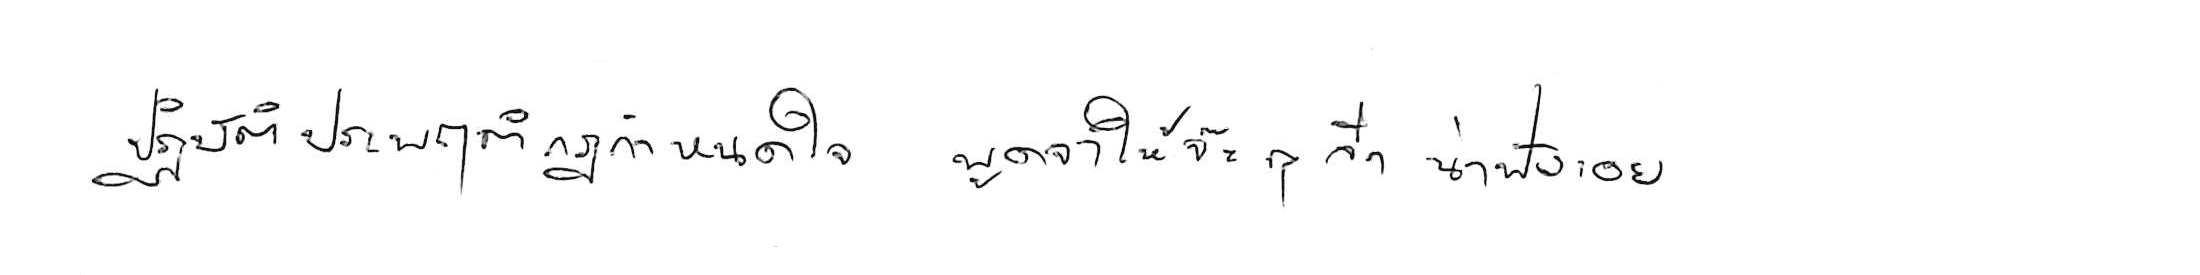 ปฏิบัติประพฤติกฎกำหนดใจ พูดจาให้จ๊ะๆ จ๋าๆ น่าฟังเอย